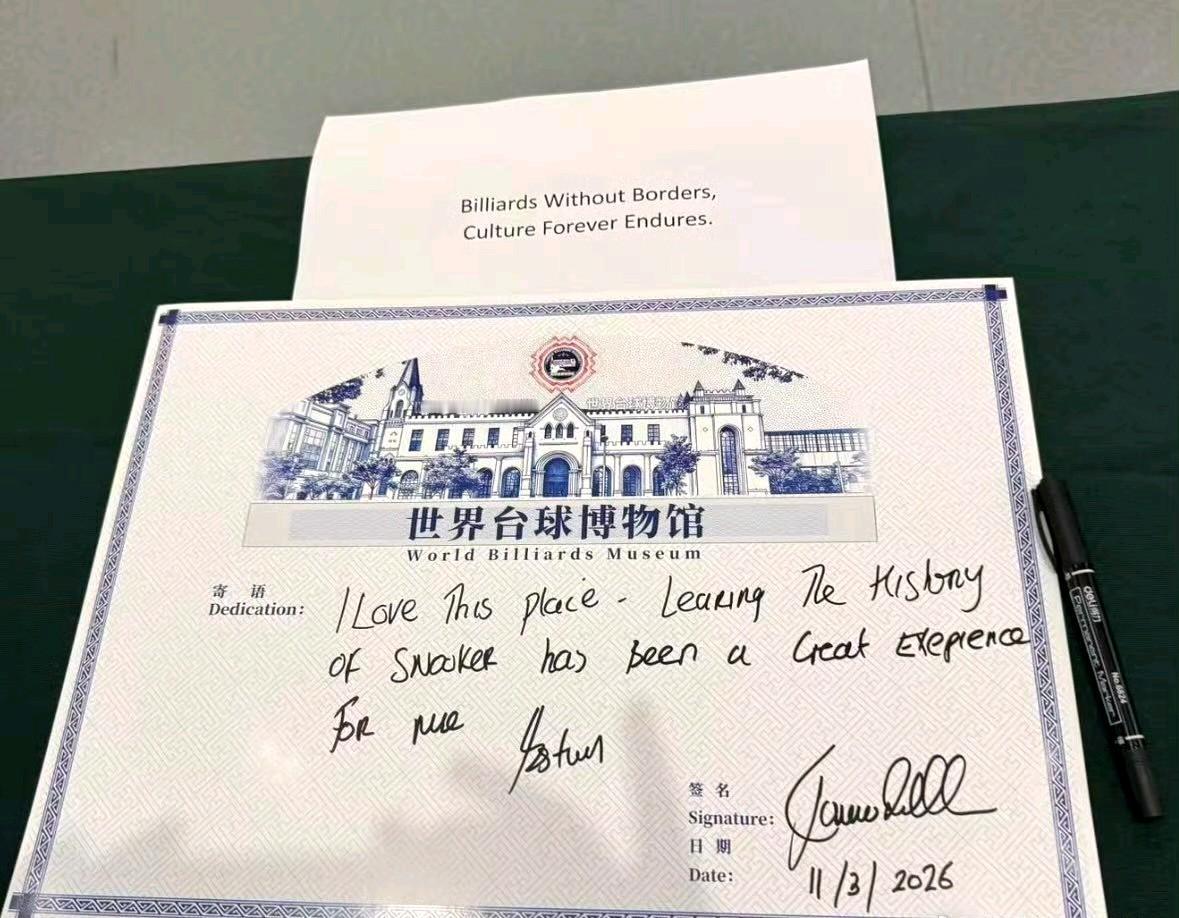 Billiards Without Borders,
Culture Forever Endures.
世界台球博物馆
世界台球博物馆
World Billiards Museum
寄 语
Dedication:
I Love This place - Learing The History
OF SNOOKER has Been a Great Exeprence
FOR me
签 名
Signature:
日 期
Date: 11/3/2026
deli得力
Permanent Marker
No.6824